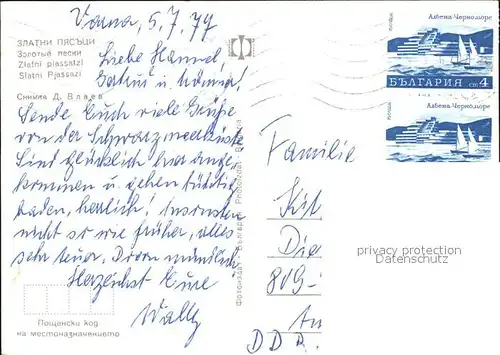 Varna, 5.7.79
ЗЛАТНИ ПЯСЪЦИ
Золотые пески
Zlatni pjassatzi
Slatni Pjassazi
Снимка Д. Влаев
Liebe
Gatrui u.
Sende Euch viele Grüße
von der Schwarzmeerküste.
Sind glücklich hier ange-
kommen u. gehen tüchtig
baden, herrlich! Ansonsten
nicht so wie früher, alles
sehr teuer. Davon mündlich
Herzlichst Eure
Wally
Пощенски код
на местоназначението
Фотоиздат - България Photoizdat - Bulgaria
Албена Черноморие
БЪЛГАРИЯ ст. 4
Албена Черноморие
Familie
Kit
Die
809
An
DDR.
privacy protection
Datenschutz